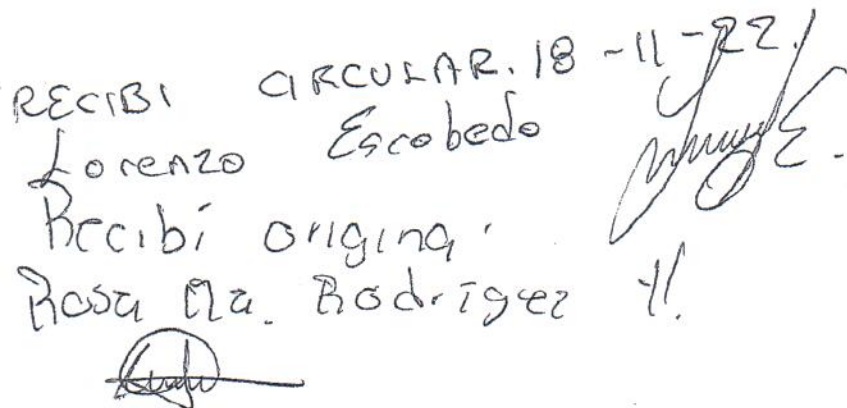 RECIBI CIRCULAR. 18-11-22.
Lorenzo Escobedo
Recibí original
Rosa Ma. Rodríguez H.